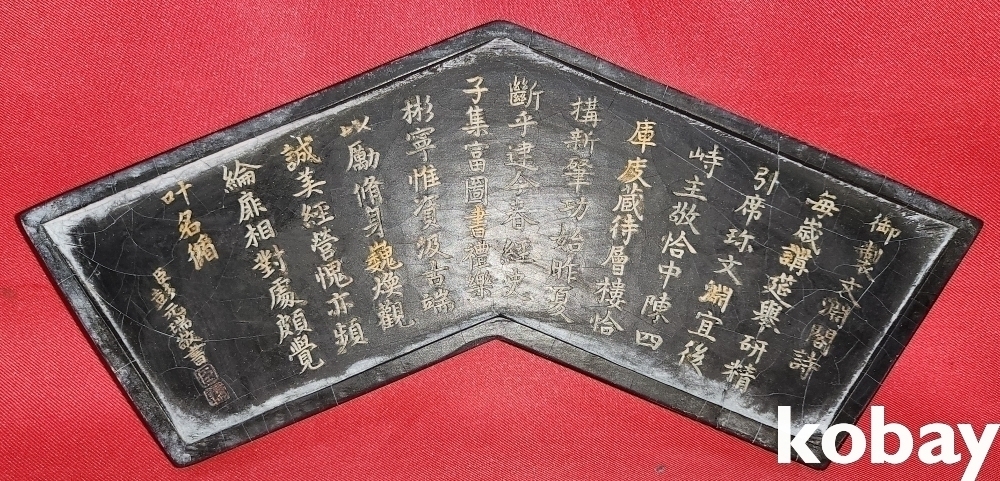 御製文淵閣詩
每歲講筵舉研精
引席珍文淵宜後
峙主敬恰中陳四
庫庋藏待層樓恰
搆新肇功始昨夏
斷乎建今春經史
子集富圖書禮樂
彬寧惟資汲古端
以勵脩身巍煥觀
誠美經營愧亦頻
綸扉相對處頗覺
叶名循
臣彭元瑞敬書
kobay